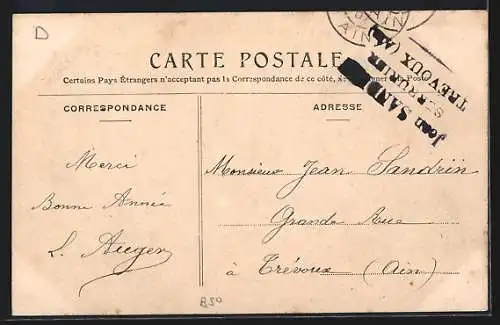 D
AIN
AIN
CARTE POSTALE
Certains Pays Étrangers n'acceptant pas la Correspondance de ce côté, se
Poste
Jean SAND
SERRURIER
TRÉVOUX (Ain)
CORRESPONDANCE
ADRESSE
Merci
Bonne Année
L. Auger
Monsieur Jean Sandrin
Grande Rue
à Trévoux (Ain)
B50